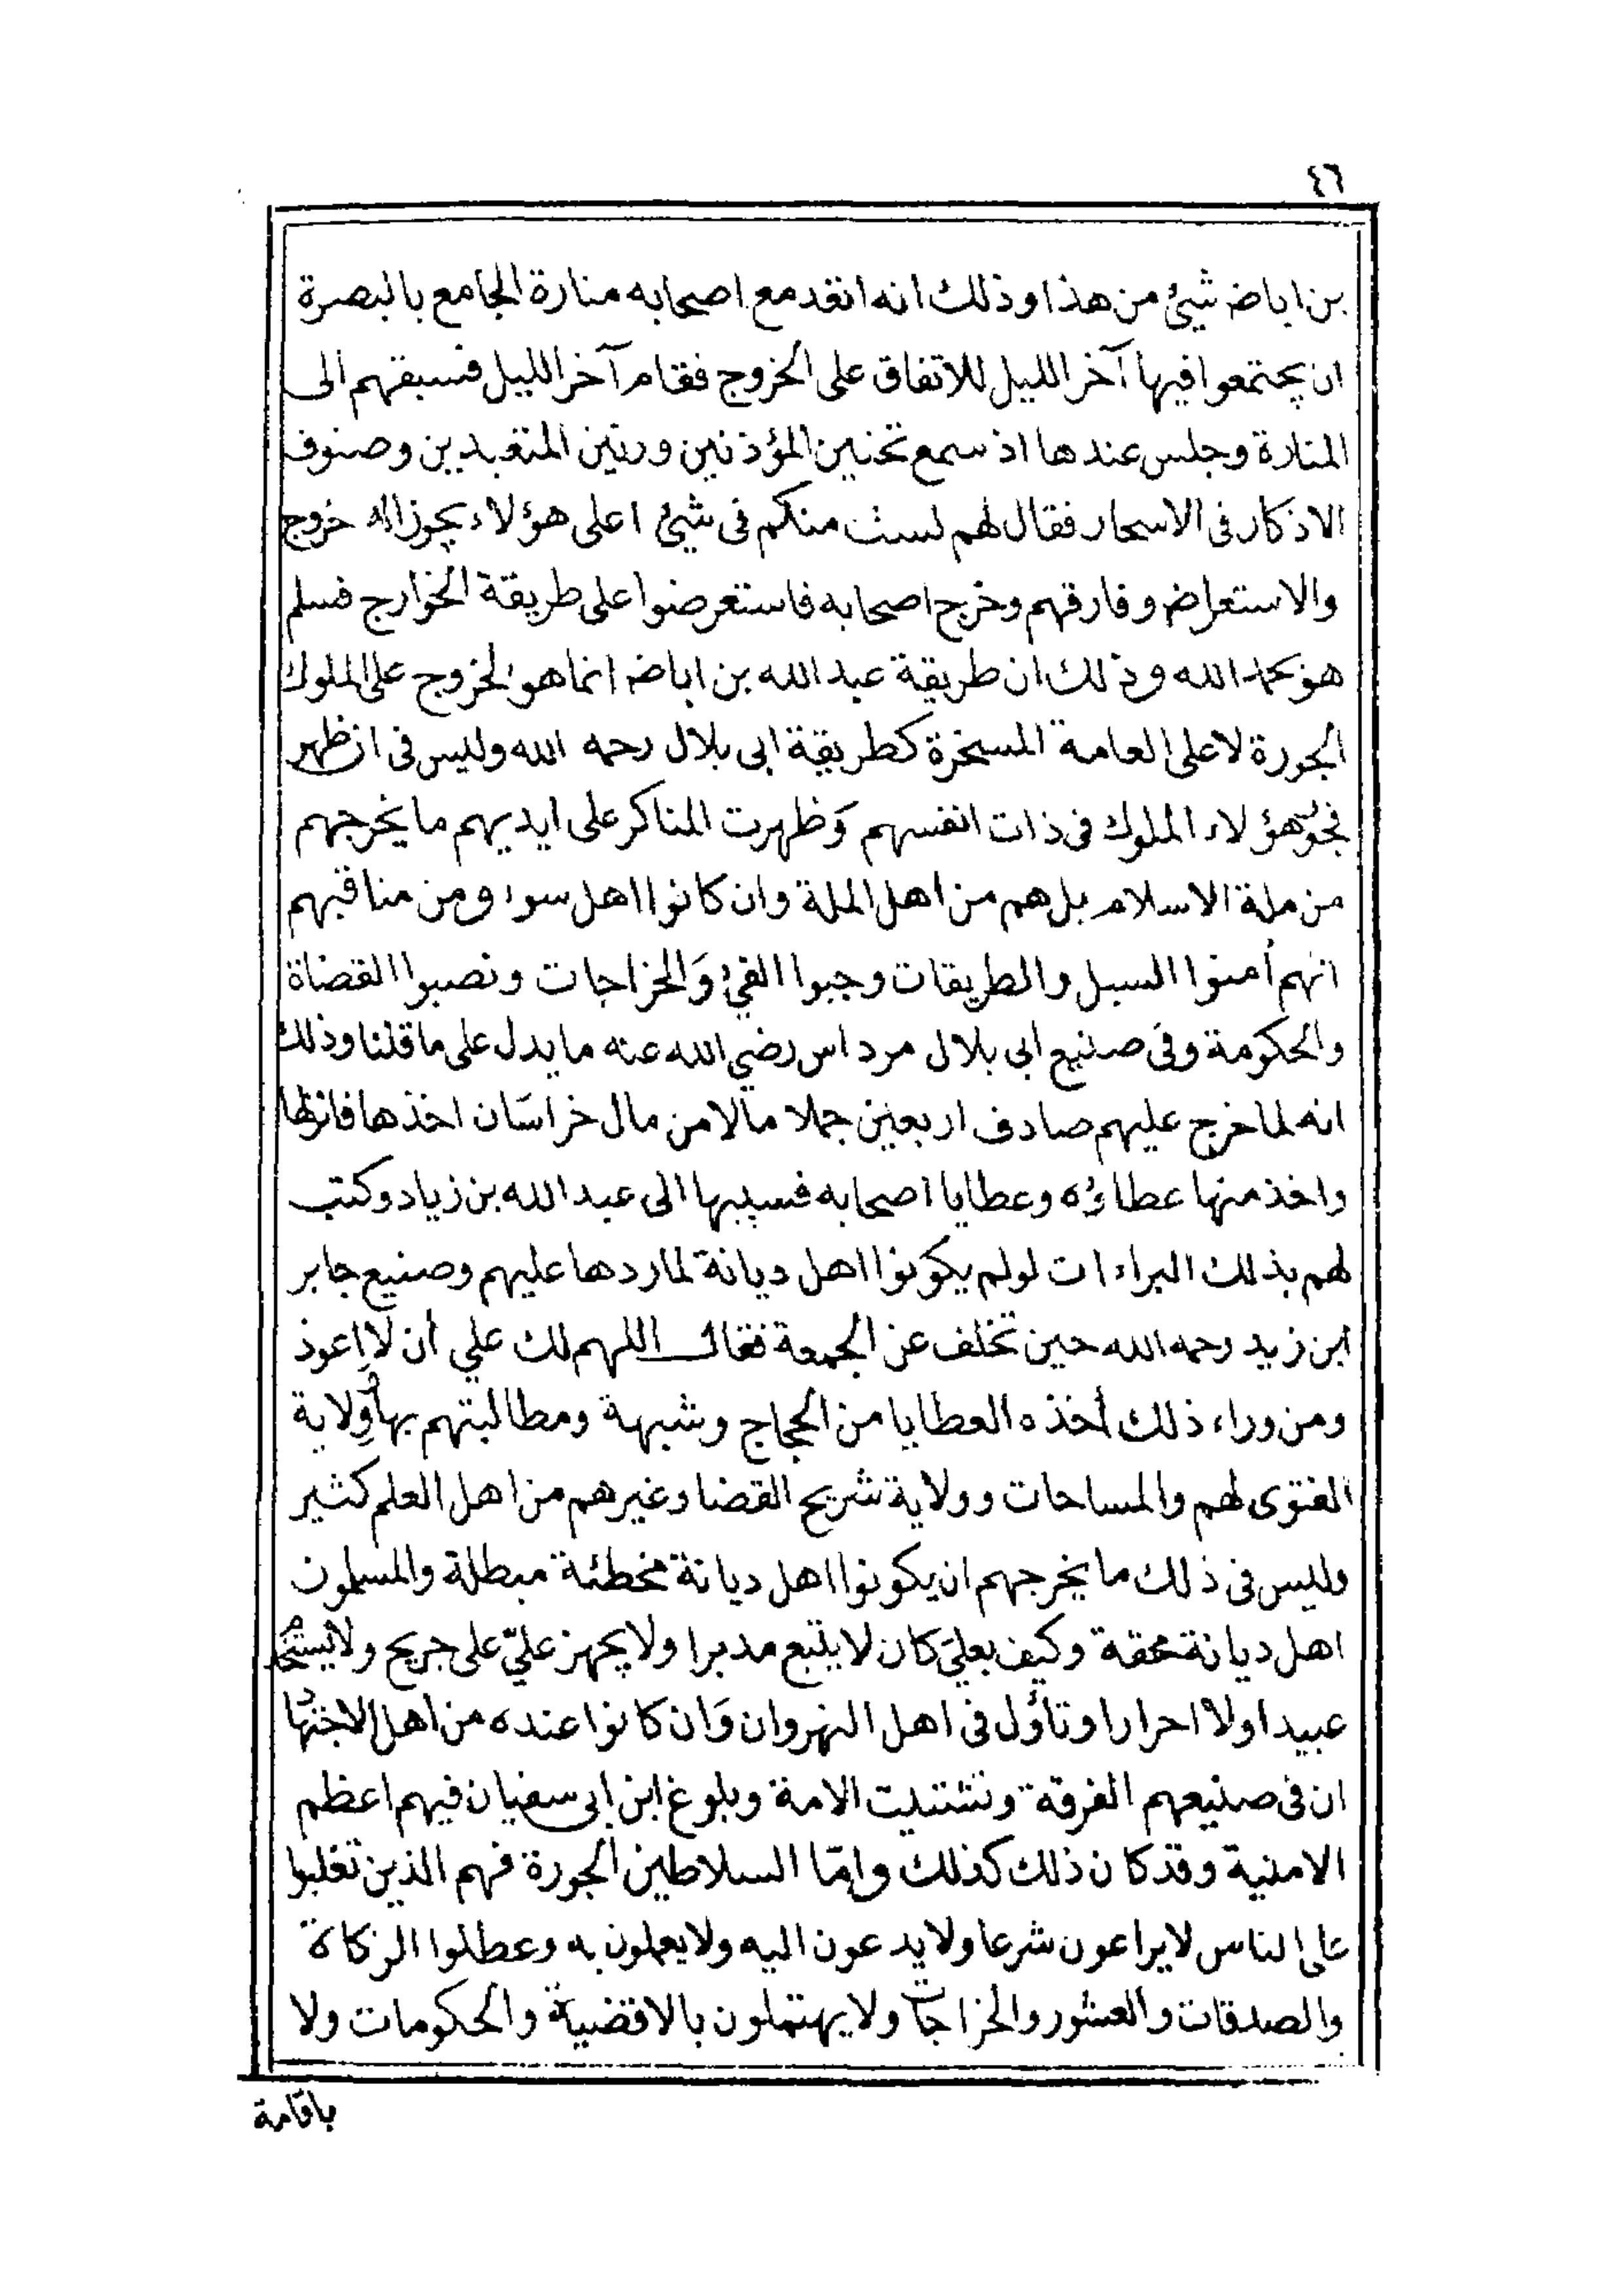 ٤٦
بن اباض شيئ من هذا وذلك انه اتعد مع اصحابه منارة الجامع بالبصرة
ان يجتمعوا فيها آخر الليل للاتفاق على الخروج فقام آخر الليل فسبقهم الى
المنارة وجلس عندها اذ سمع تحنين المؤذنين ورنين المتعبدين وصنوف
الاذكار فى الاسحار فقال لهم لست منكم فى شيئ اعلى هؤلاء يجوز خروج
والاستعراض وفارقهم وخرج اصحابه فاستعرضوا على طريقة الخوارج فسلم
هو بحمد الله وذلك ان طريقة عبد الله بن اباض انما هو الخروج على الملوك
الجورة لا على العامة المسخرة كطريقة ابى بلال رحمه الله وليس فى ان ظهر
فجور هؤلاء الملوك فى ذات انفسهم وَظهرت المناكر على ايديهم ما يخرجهم
من ملة الاسلام بل هم من اهل الملة وان كانوا اهل سوء ومن مناقبهم
انهم أمنوا السبل والطريقات وجبوا الفيئ وَالخراجات ونصبوا القضاة
والحكومة وفى صنيع ابى بلال مرداس رضي الله عنه ما يدل على ما قلنا وذلك
انه لما خرج عليهم صادف اربعين جملا مالا من مال خراسان اخذها
واخذ منها عطاؤه وعطايا اصحابه فسيبها الى عبد الله بن زياد وكتب
لهم بذلك البراءات لو لم يكونوا اهل ديانة لما ردها عليهم وصنيع جابر
ابن زيد رحمه الله حين تخلف عن الجمعة فقال اللهم لك علي أن لا اعوذ
ومن وراء ذلك أخذه العطايا من الحجاج وشبهة ومطالبتهم بها وِلاية
الفتوى لهم والمساحات وولاية شريح القضا وغيرهم من اهل العلم كثير
وليس فى ذلك ما يخرجهم ان يكونوا اهل ديانة مخطئة مبطلة والمسلمون
اهل ديانة محقة وكيف بعلي كان لا يتبع مدبرا ولا يجهز عليّ على جريح ولا
عبيدا ولا احرارا وتأول فى اهل النهروان وَان كانوا عنده من اهل الاجتهاد
ان فى صنيعهم الفرقة وتشتيت الامة وبلوغ ابن ابى سفيان فيهم اعظم
الامنية وقد كان ذلك كذلك وامّا السلاطين الجورة فهم الذين تغلبوا
على الناس لا يراعون شرعا ولا يدعون اليه ولا يعملون به وعطلوا الزكاة
والصدقات والعشور والخراجات ولا يهتمون بالاقضية والحكومات ولا
باقامة